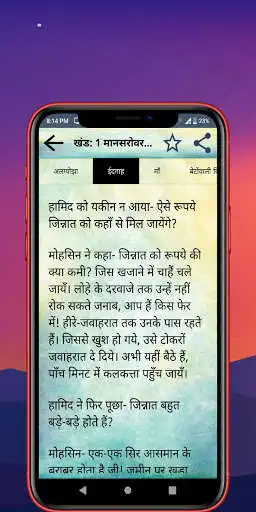 8:14 PM
23%
खंड: 1 मानसरोवर...
अलग्योझा
ईदगाह
माँ
बेटोंवाली वि
हामिद को यकीन न आया- ऐसे रूपये
जिन्नात को कहाँ से मिल जायेंगे?
मोहसिन ने कहा- जिन्नात को रूपये की
क्या कमी? जिस खजाने में चाहें चले
जायँ। लोहे के दरवाजे तक उन्हें नहीं
रोक सकते जनाब, आप हैं किस फेर
में! हीरे-जवाहरात तक उनके पास रहते
हैं। जिससे खुश हो गये, उसे टोकरों
जवाहरात दे दिये। अभी यहीं बैठे हैं,
पाँच मिनट में कलकत्ता पहुँच जायँ।
हामिद ने फिर पूछा- जिन्नात बहुत
बड़े-बड़े होते हैं?
मोहसिन- एक-एक सिर आसमान के
बराबर होता है जी! जमीन पर खड़ा